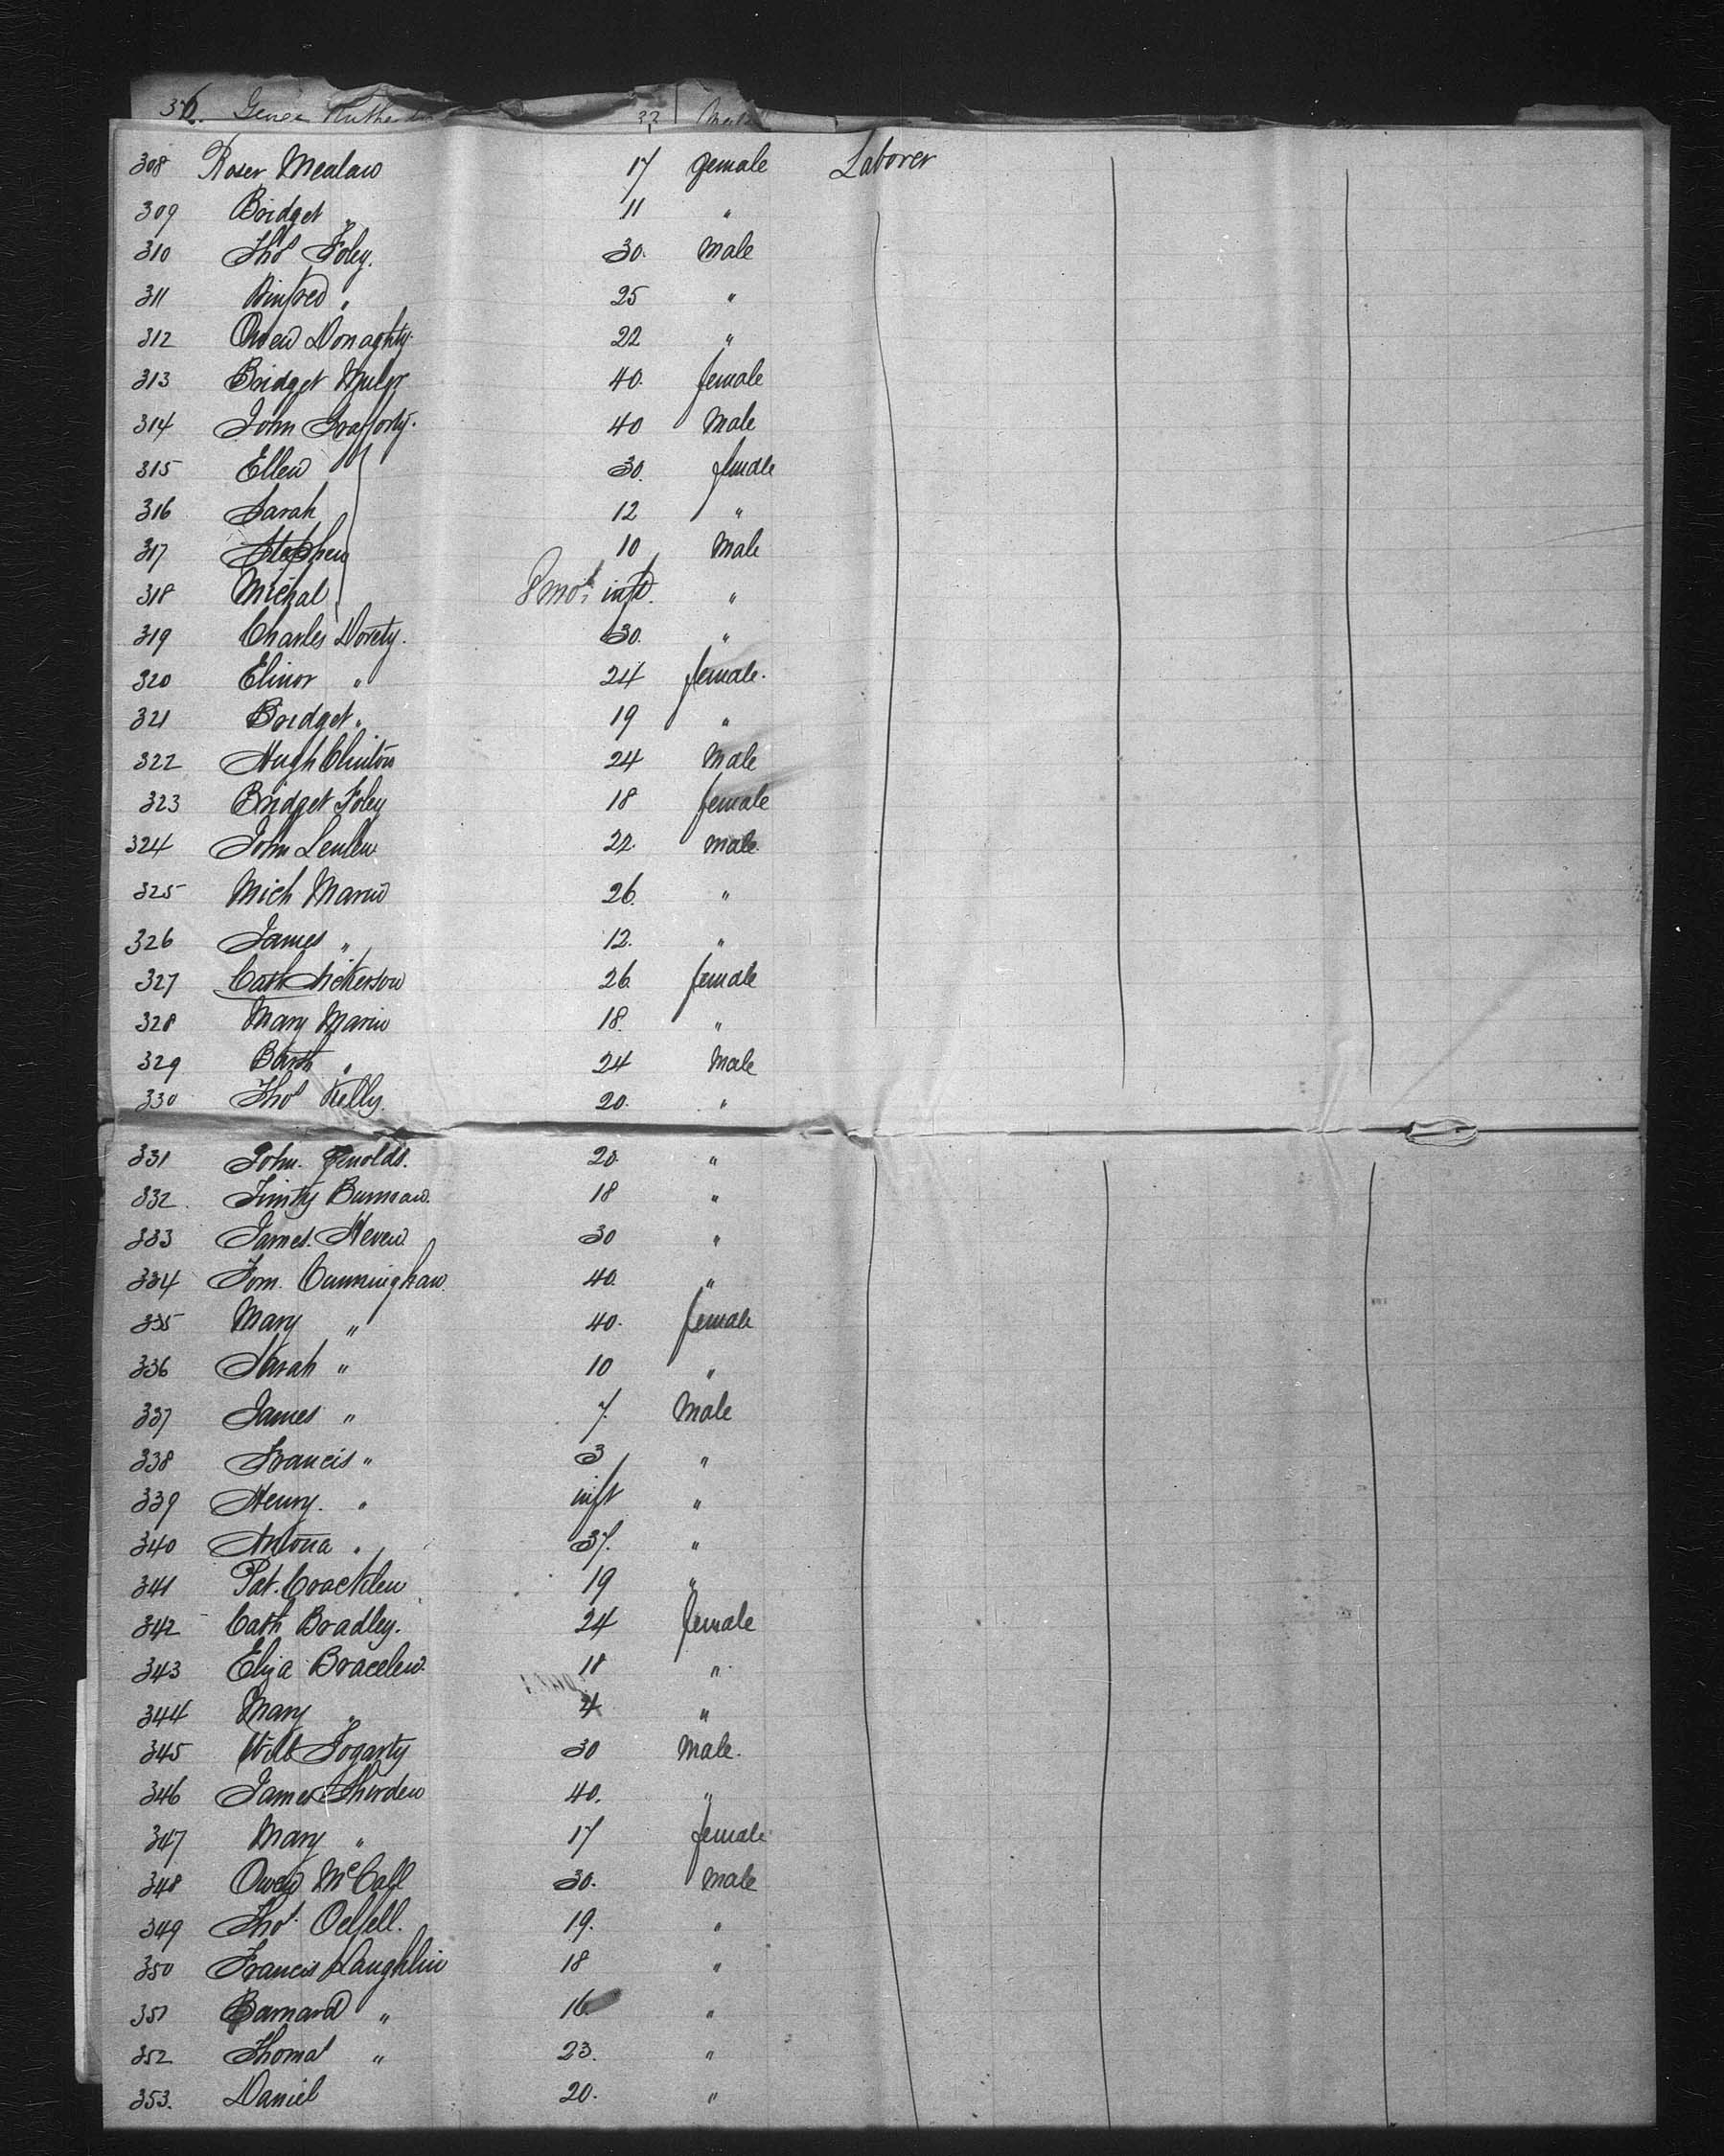 36. George 33 Male
308 Roser Mealaw 17 female Laborer
309 Bridget " 11 "
310 Thos Foley. 30. Male
311 Winfred " 25 "
312 Owen Donaghty. 22 "
313 Bridget 40. female
314 John 40 Male
315 Ellen 30. female
316 Sarah 12 "
317 Stephen 10 Male
318 Michal 8 mos inft. "
319 Charles Dorety. 30. "
320 Elinor " 24 female.
321 Bridget " 19 "
322 Hugh Clinton 24 Male
323 Bridget Foley 18 female
324 John 22. male.
325 Mich Marin 26. "
326 James " 12. "
327 Cath Nickerson 26 female
328 Mary Marin 18. "
329 Barth " 24 Male
330 Thos Kelly. 20. "
331 John. 20. "
332. 18 "
333 James. Heven. 30 "
334 Tom. Cunningham. 40. "
335 Mary " 40. female
336 Sarah " 10 "
337 James " 7. Male
338 Francis " 3 "
339 Henry. " inft "
340 " 37. "
341 Pat. 19 "
342 Cath Bradley. 24 female
343 Eliza Bracelen. 18 "
344 Mary " 4 "
345 Will Fogarty 30 Male.
346 James Shirden 40. "
347 Mary " 17 female
348 Owen McCall 30. male
349 Thos. 19. "
350 Francis Laughlin 18 "
351 Barnard " 16 "
352 Thomas " 23. "
353. Daniel 20. "